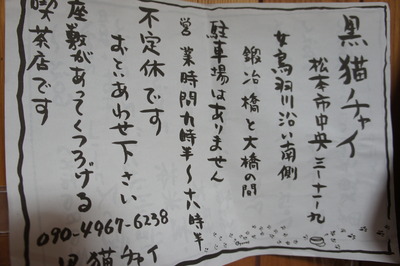 黒猫チャイ
松本市中央三-十一-九
女鳥羽川沿い南側
鍛冶橋と大橋の間
駐車場はありません
営業時間九時半〜十八時半
不定休です
おといあわせ下さい
座敷があってくつろげる
喫茶店です
090-4967-6238
黒猫チャイ